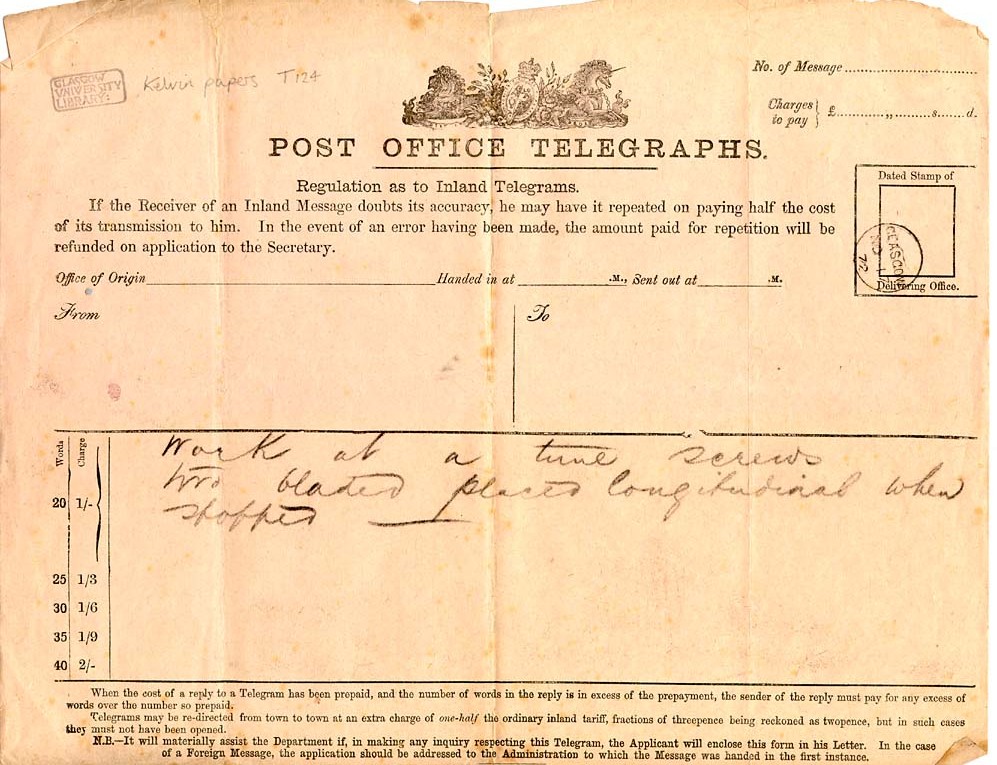 GLASGOW
UNIVERSITY
LIBRARY:
Kelvin papers T124
No. of Message
Charges to pay } £ „ s. d.
POST OFFICE TELEGRAPHS.
Regulation as to Inland Telegrams.
If the Receiver of an Inland Message doubts its accuracy, he may have it repeated on paying half the cost
of its transmission to him. In the event of an error having been made, the amount paid for repetition will be
refunded on application to the Secretary.
Dated Stamp of
GLASGOW
NO 1
72
Delivering Office.
Office of Origin Handed in at .M., Sent out at .M.
From
To
Words Charge
Work at a time screws
two bladed placed longitudinal when
stopped
20 1/-
25 1/3
30 1/6
35 1/9
40 2/-
When the cost of a reply to a Telegram has been prepaid, and the number of words in the reply is in excess of the prepayment, the sender of the reply must pay for any excess of
words over the number so prepaid.
Telegrams may be re-directed from town to town at an extra charge of one-half the ordinary inland tariff, fractions of threepence being reckoned as twopence, but in such cases
they must not have been opened.
N.B.—It will materially assist the Department if, in making any inquiry respecting this Telegram, the Applicant will enclose this form in his Letter. In the case
of a Foreign Message, the application should be addressed to the Administration to which the Message was handed in the first instance.